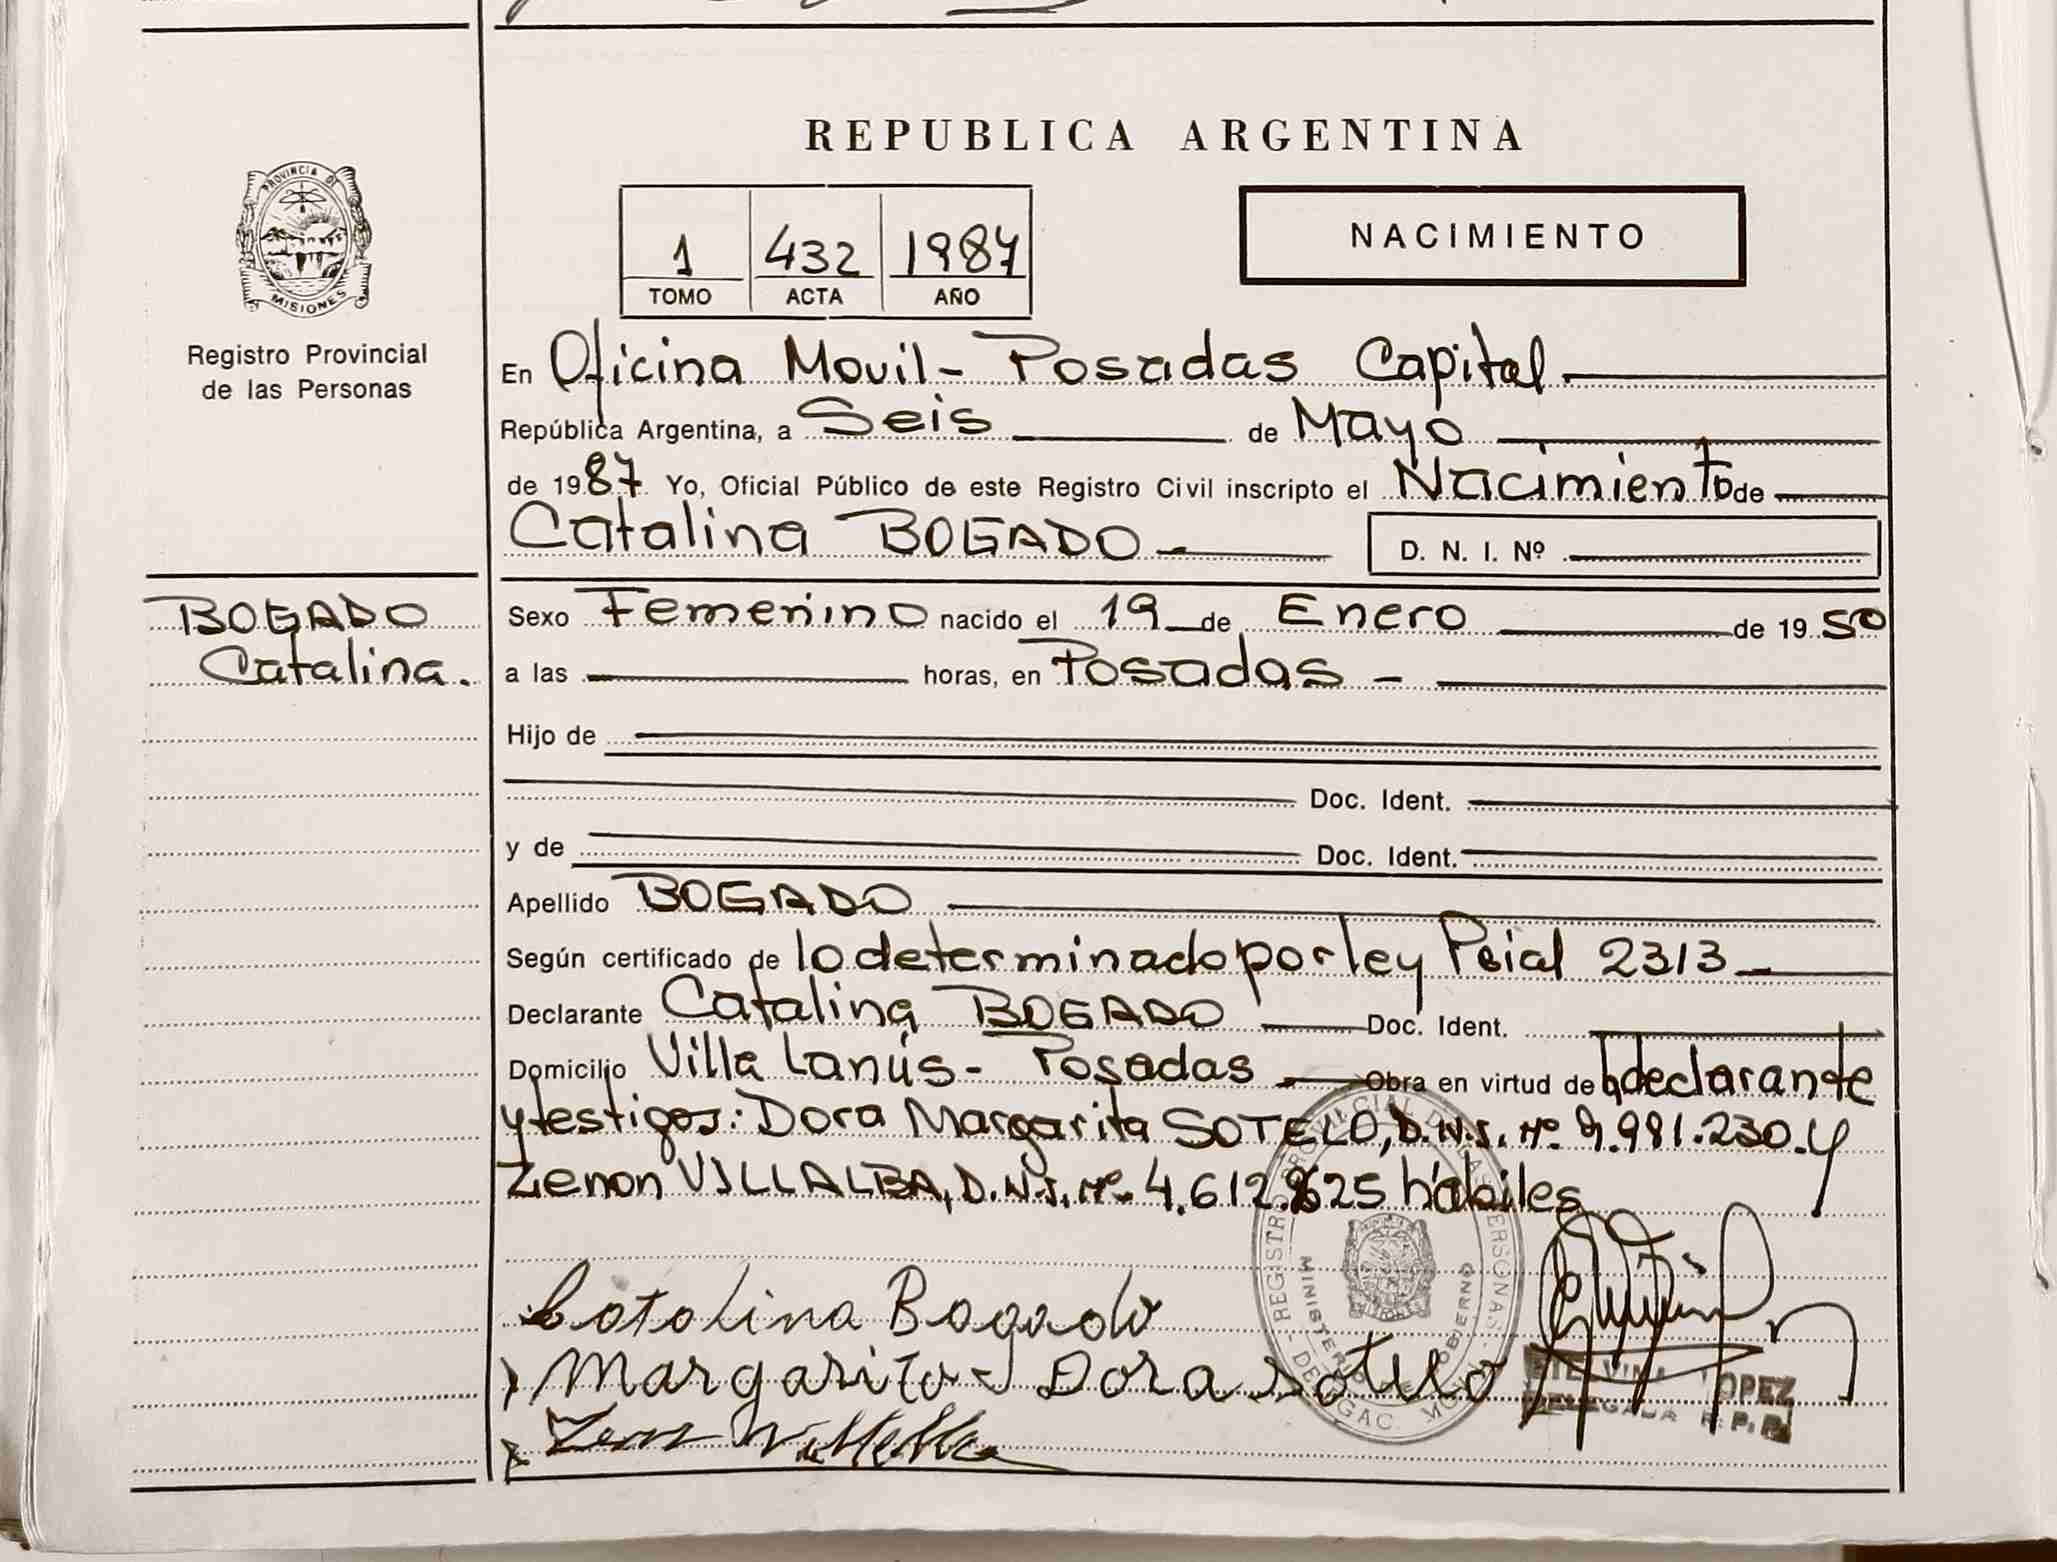 REPUBLICA ARGENTINA
PROVINCIA DE MISIONES
Registro Provincial
de las Personas
1 432 1987
TOMO ACTA AÑO
NACIMIENTO
En Oficina Movil - Posadas Capital.
República Argentina, a Seis de Mayo
de 1987 Yo, Oficial Público de este Registro Civil inscripto el Nacimiento de
Catalina BOGADO - D. N. I. Nº
BOGADO
Catalina.
Sexo Femenino nacido el 19 de Enero de 1950
a las horas, en Posadas -
Hijo de
Doc. Ident.
y de Doc. Ident.
Apellido BOGADO
Según certificado de lo determinado por ley Pcial 2313
Declarante Catalina BOGADO Doc. Ident.
Domicilio Villa Lanús - Posadas Obra en virtud de la declarante
y testigos: Dora Margarita SOTELO, D.N.I. Nº 9.981.230.y
Zenon VILLALBA, D.N.I. Nº 4.612.825 hábiles
Catalina Bogado
Margarita Dora Sotelo
REGISTRO PROVINCIAL DE LAS PERSONAS
MINISTERIO DE GOBIERNO
LOPEZ
DELEGADA R.P.P.